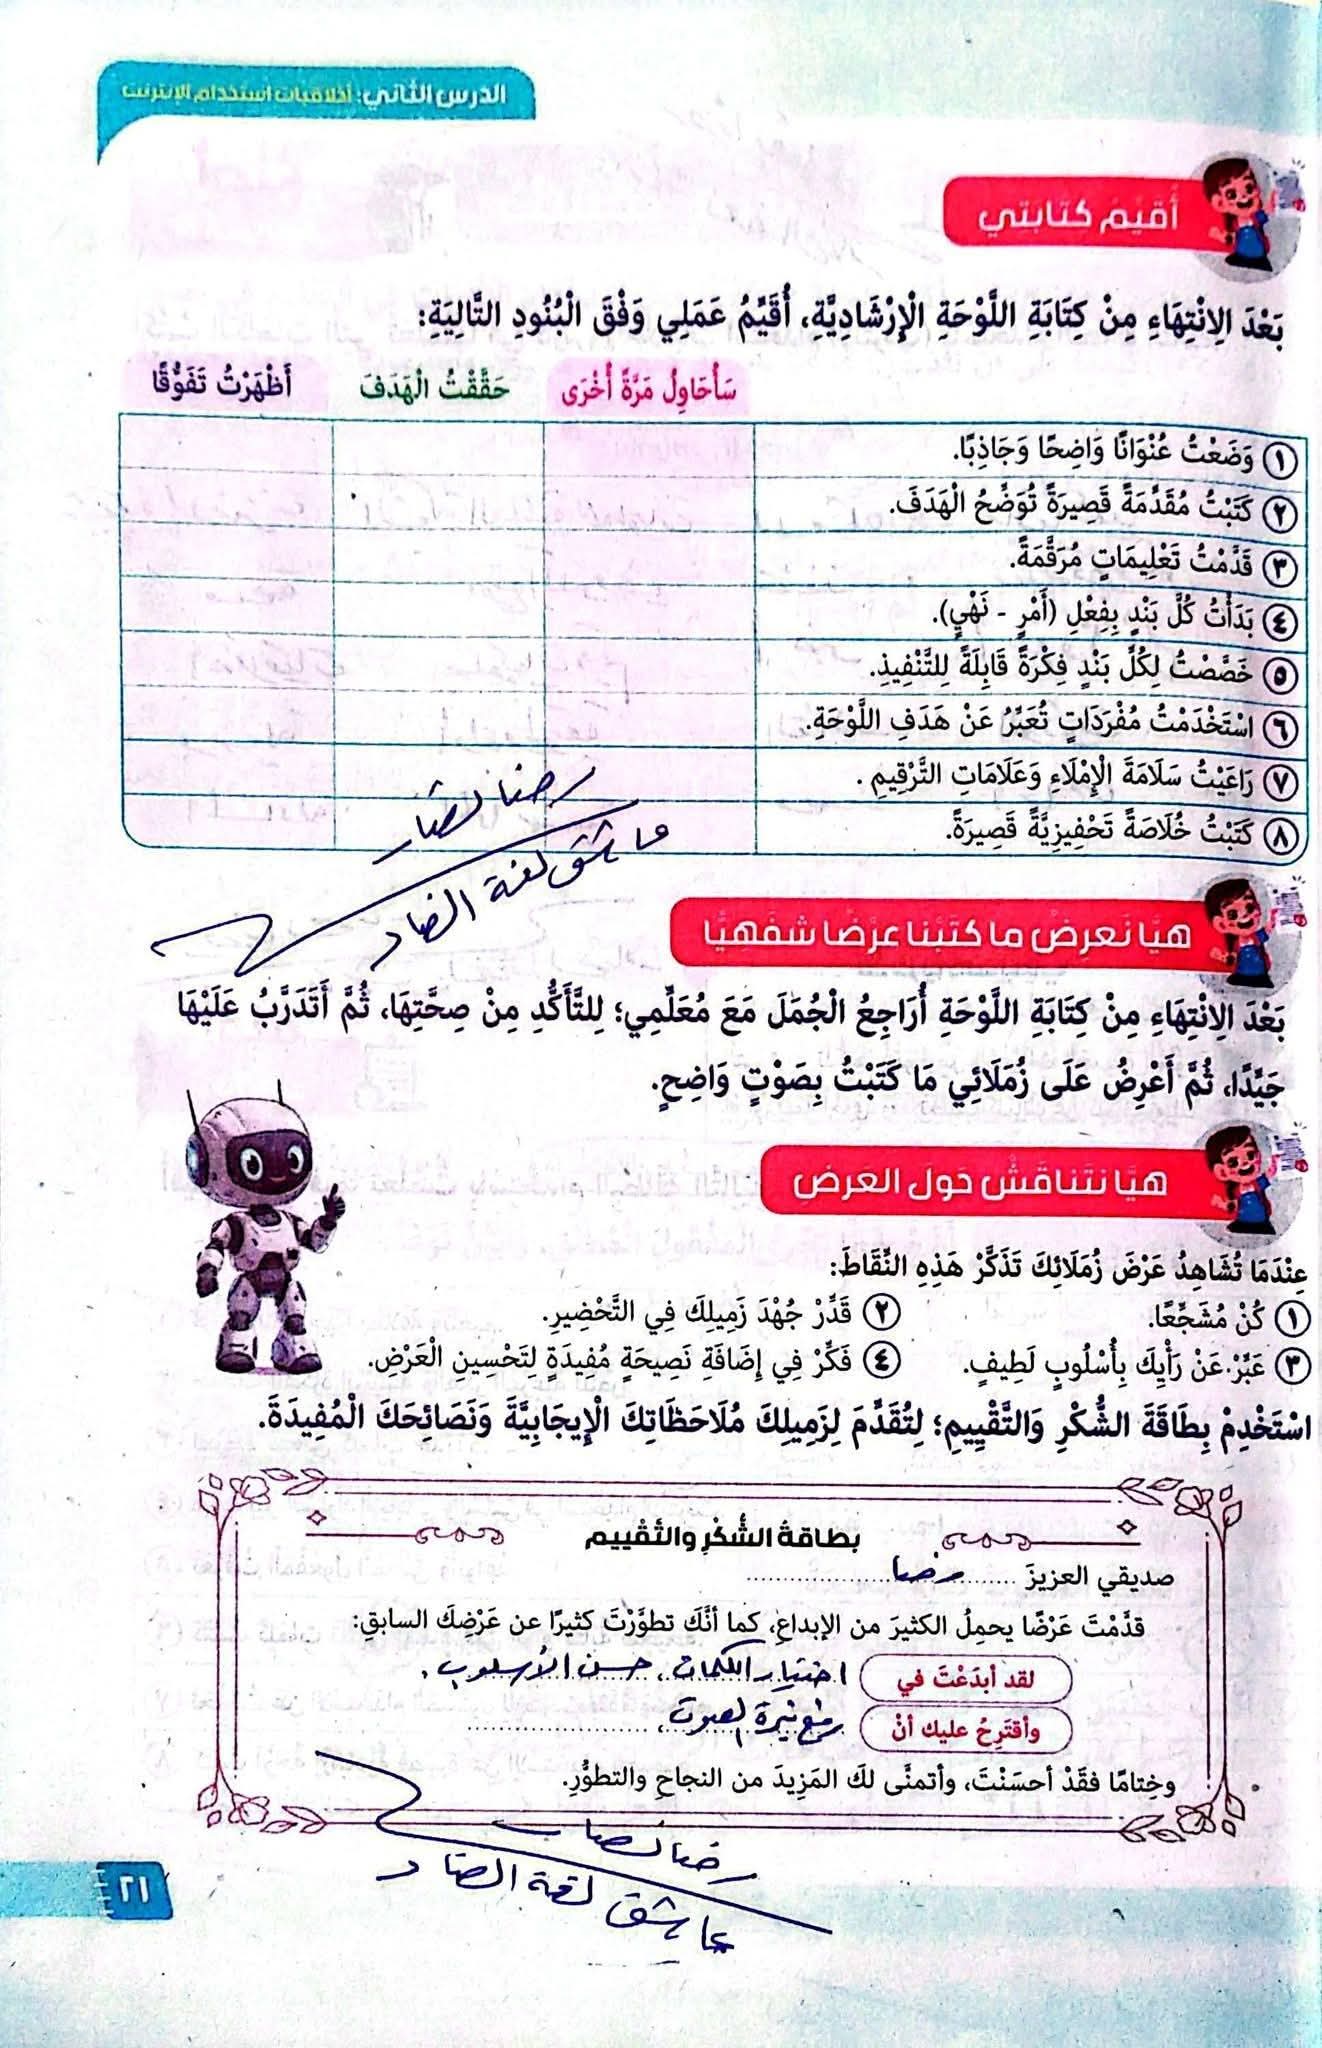 الدرس الثاني: أخلاقيات استخدام الإنترنت
أقيم كتابتي
بَعْدَ الِانْتِهَاءِ مِنْ كِتَابَةِ اللَّوْحَةِ الْإِرْشَادِيَّةِ، أُقَيِّمُ عَمَلِي وَفْقَ الْبُنُودِ التَّالِيَةِ:
سَأُحَاوِلُ مَرَّةً أُخْرَى حَقَّقْتُ الْهَدَفَ أَظْهَرْتُ تَفَوُّقًا
١ وَضَعْتُ عُنْوَانًا وَاضِحًا وَجَاذِبًا.
٢ كَتَبْتُ مُقَدِّمَةً قَصِيرَةً تُوَضِّحُ الْهَدَفَ.
٣ قَدَّمْتُ تَعْلِيمَاتٍ مُرَقَّمَةً.
٤ بَدَأْتُ كُلَّ بَنْدٍ بِفِعْلِ (أَمْرٍ - نَهْيٍ).
٥ خَصَّصْتُ لِكُلِّ بَنْدٍ فِكْرَةً قَابِلَةً لِلتَّنْفِيذِ.
٦ اسْتَخْدَمْتُ مُفْرَدَاتٍ تُعَبِّرُ عَنْ هَدَفِ اللَّوْحَةِ.
٧ رَاعَيْتُ سَلَامَةَ الْإِمْلَاءِ وَعَلَامَاتِ التَّرْقِيمِ.
٨ كَتَبْتُ خُلَاصَةً تَحْفِيزِيَّةً قَصِيرَةً.
رضا
عاشق لغة الضاد
هيَّا نَعرضْ ما كتَبْنا عرْضًا شفَهيًّا
بَعْدَ الِانْتِهَاءِ مِنْ كِتَابَةِ اللَّوْحَةِ أُرَاجِعُ الْجُمَلَ مَعَ مُعَلِّمِي؛ لِلتَّأَكُّدِ مِنْ صِحَّتِهَا، ثُمَّ أَتَدَرَّبُ عَلَيْهَا
جَيِّدًا، ثُمَّ أَعْرِضُ عَلَى زُمَلَائِي مَا كَتَبْتُ بِصَوْتٍ وَاضِحٍ.
هيَّا نتَناقَشْ حَولَ العَرضِ
عِنْدَمَا تُشَاهِدُ عَرْضَ زُمَلَائِكَ تَذَكَّرْ هَذِهِ النِّقَاطَ:
١ كُنْ مُشَجِّعًا. ٢ قَدِّرْ جُهْدَ زَمِيلِكَ فِي التَّحْضِيرِ.
٣ عَبِّرْ عَنْ رَأْيِكَ بِأُسْلُوبٍ لَطِيفٍ. ٤ فَكِّرْ فِي إِضَافَةِ نَصِيحَةٍ مُفِيدَةٍ لِتَحْسِينِ الْعَرْضِ.
اسْتَخْدِمْ بِطَاقَةَ الشُّكْرِ وَالتَّقْيِيمِ؛ لِتُقَدِّمَ لِزَمِيلِكَ مُلَاحَظَاتِكَ الْإِيجَابِيَّةَ وَنَصَائِحَكَ الْمُفِيدَةَ.
بطاقةُ الشُّكْرِ والتَّقْييم
صديقي العزيزَ رضا
قدَّمْتَ عَرْضًا يحمِلُ الكثيرَ من الإبداعِ، كما أنَّكَ تطوَّرْتَ كثيرًا عن عَرْضِكَ السابقِ:
لقد أبدَعْتَ في اختيار الكلمات، حسن الأسلوب.
وأقترِحُ عليك أنْ رفع نبرة الصوت.
وخِتامًا فقَدْ أحسَنْتَ، وأتمنَّى لكَ المَزِيدَ من النجاحِ والتطوُّرِ.
رضا
عاشق لغة الضاد
٢١